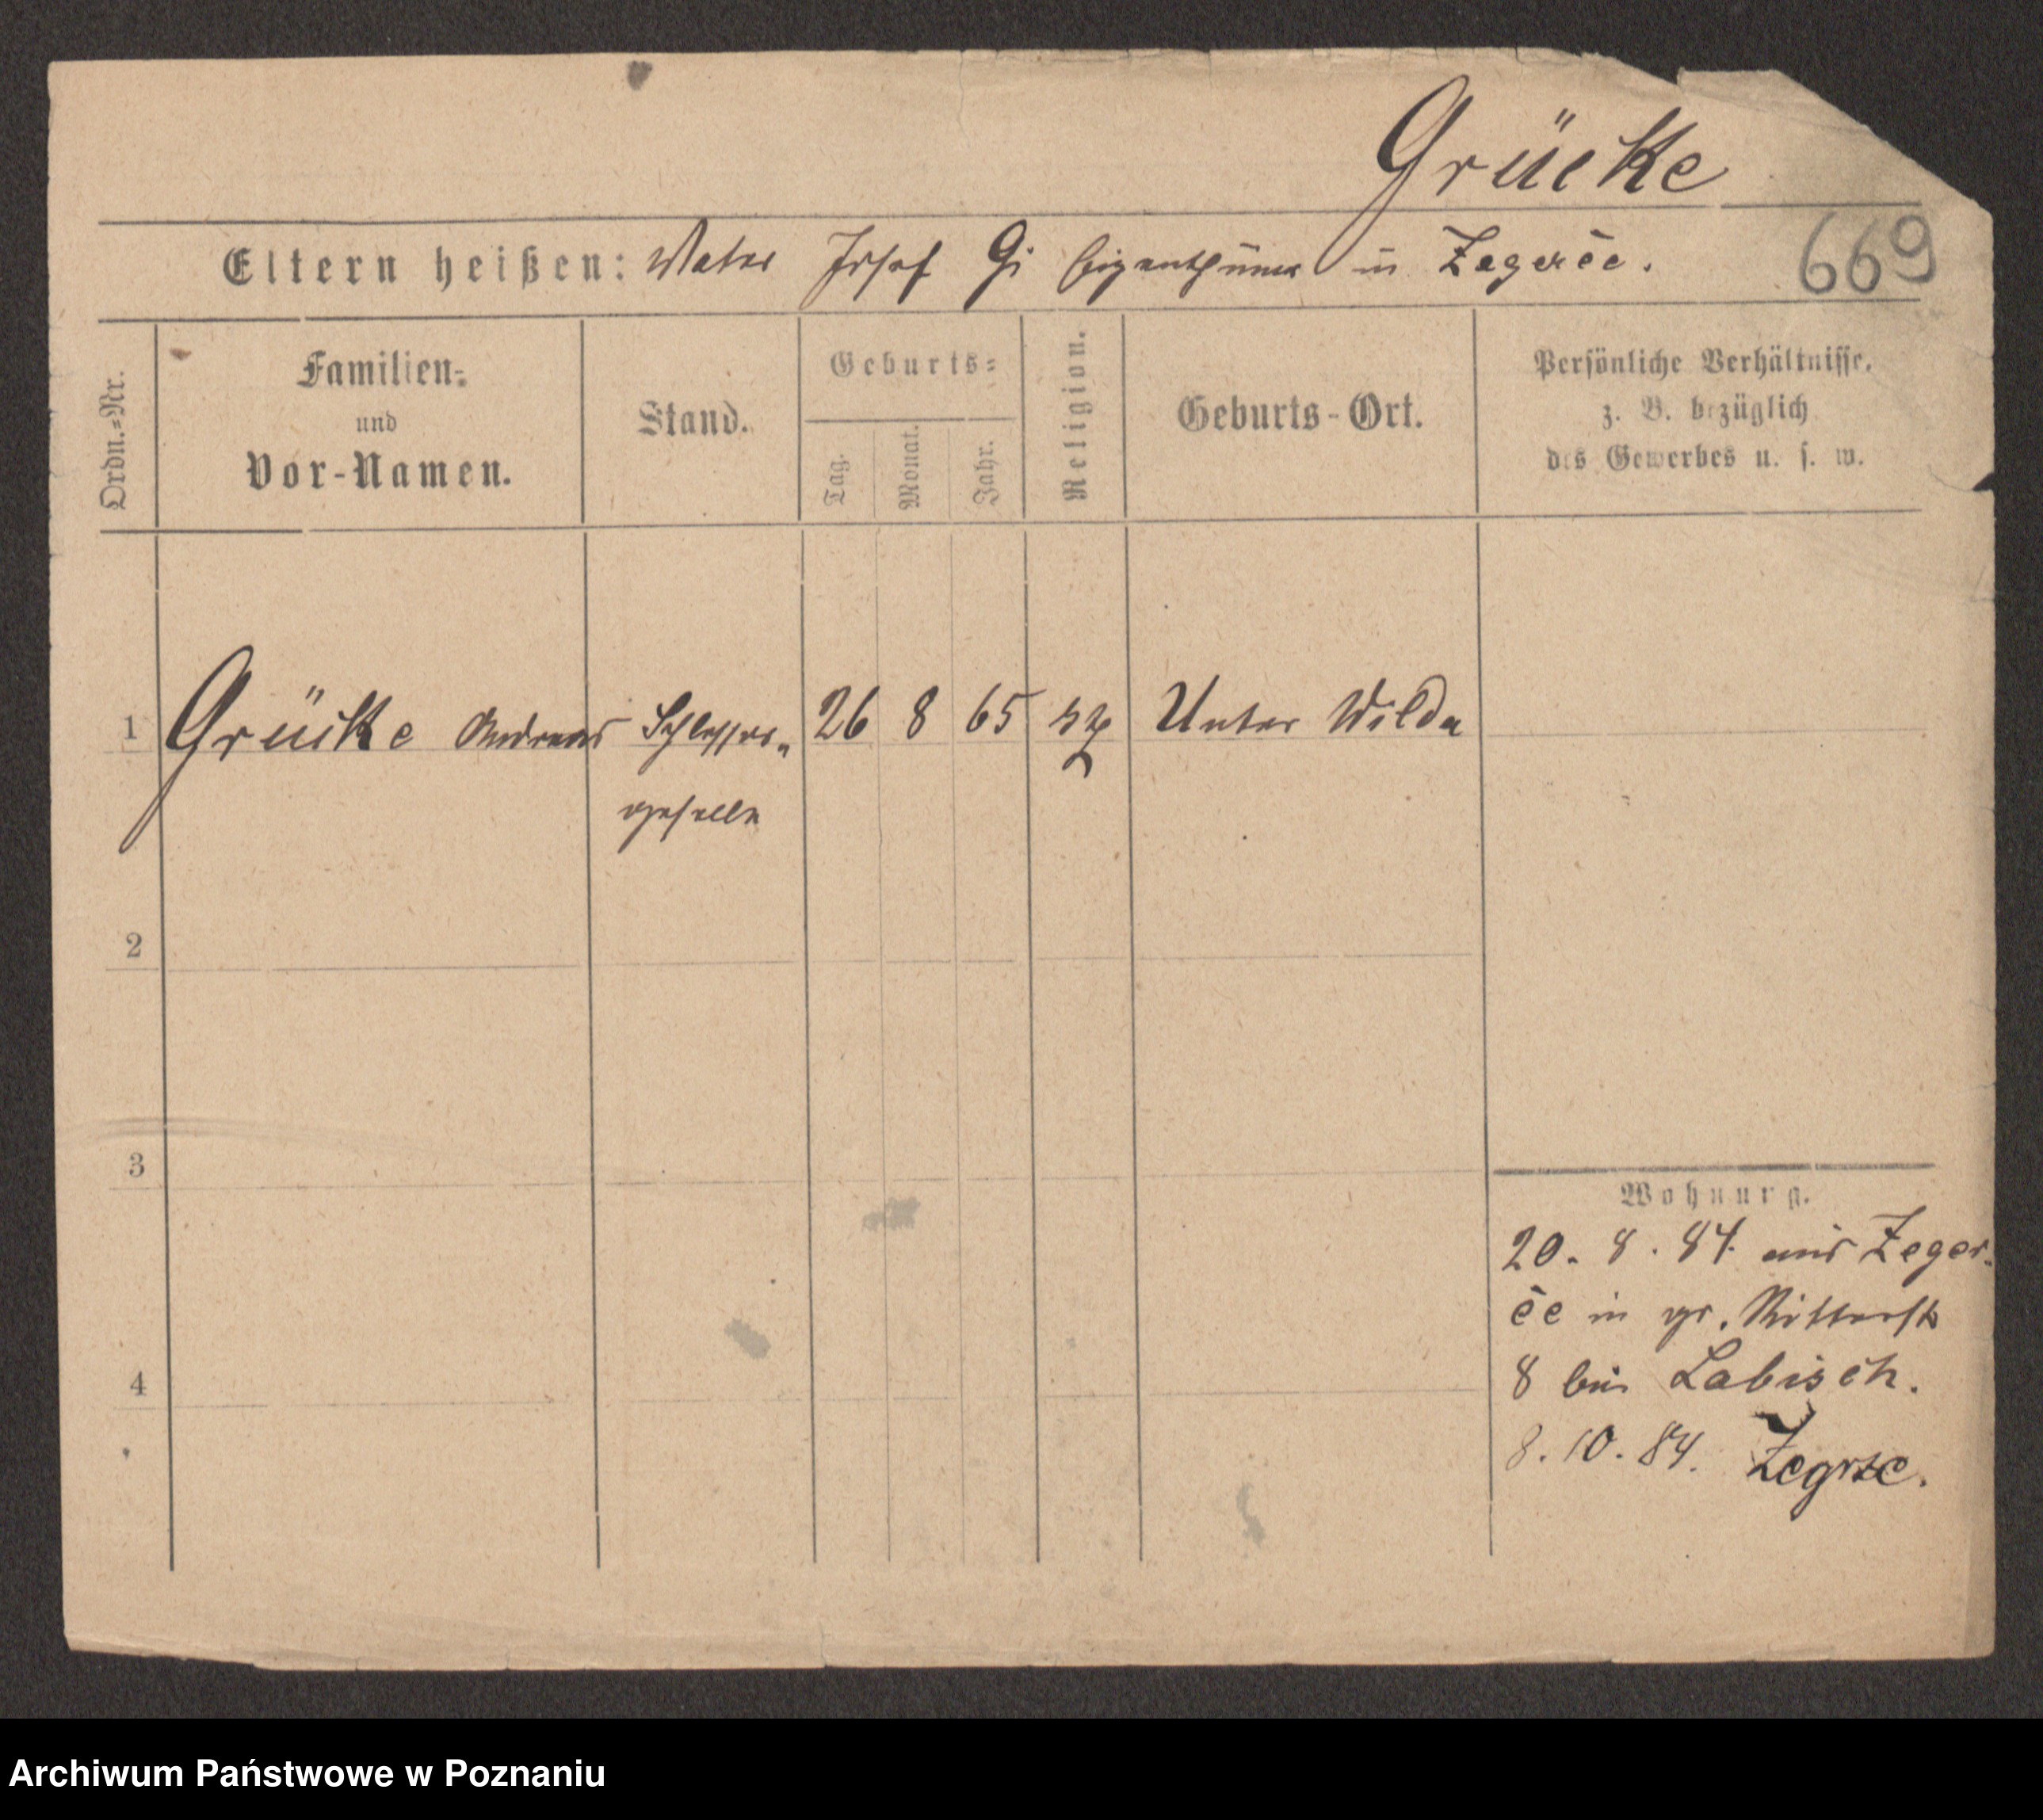 Grücke
Eltern heißen: Vater Josef G. Eigenthümer in Zegerče.
669
Ordn.-Nr.
Familien-
und
Vor-Namen.
Stand.
Geburts-
Tag.
Monat.
Jahr.
Religion.
Geburts-Ort.
Persönliche Verhältnisse.
z. B. bezüglich
des Gewerbes u. s. w.
1 Grücke Andreas Schlosser- 26 8 65 Unter Wilda
geselle
2
3
Wohnung.
20. 8. 84. aus Zeger-
če in gr. Ritterstr
8 bei Labisch.
4
8. 10. 84. Zegrze.
Archiwum Państwowe w Poznaniu